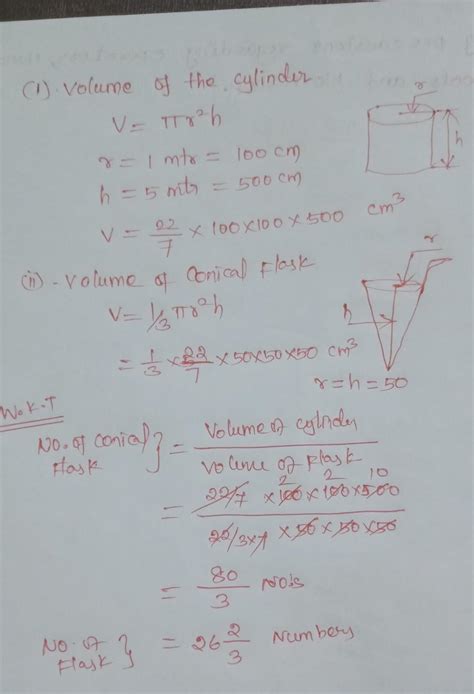 (i) . Volume of the cylinder
V = πr²h
r
r = 1 mtr = 100 cm
h
h = 5 mtr = 500 cm
V = 22/7 × 100×100 × 500 cm³
(ii) - Volume of Conical Flask
r
V = 1/3 πr²h
h
= 1/3 × 22/7 × 50×50×50 cm³
r = h = 50
W.K.T
No. of Conical Flask } = Volume of cylinder / Volume of Flask
2 2 10
= 22/7 × 100 × 100 × 500
22/3×7 × 50 × 50 × 50
= 80/3 Nois
No. of Flask } = 26 2/3 Numbers